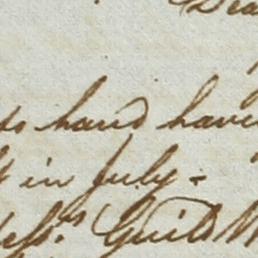 Dea
to hand havi
in July =
Mess.rs Guild W